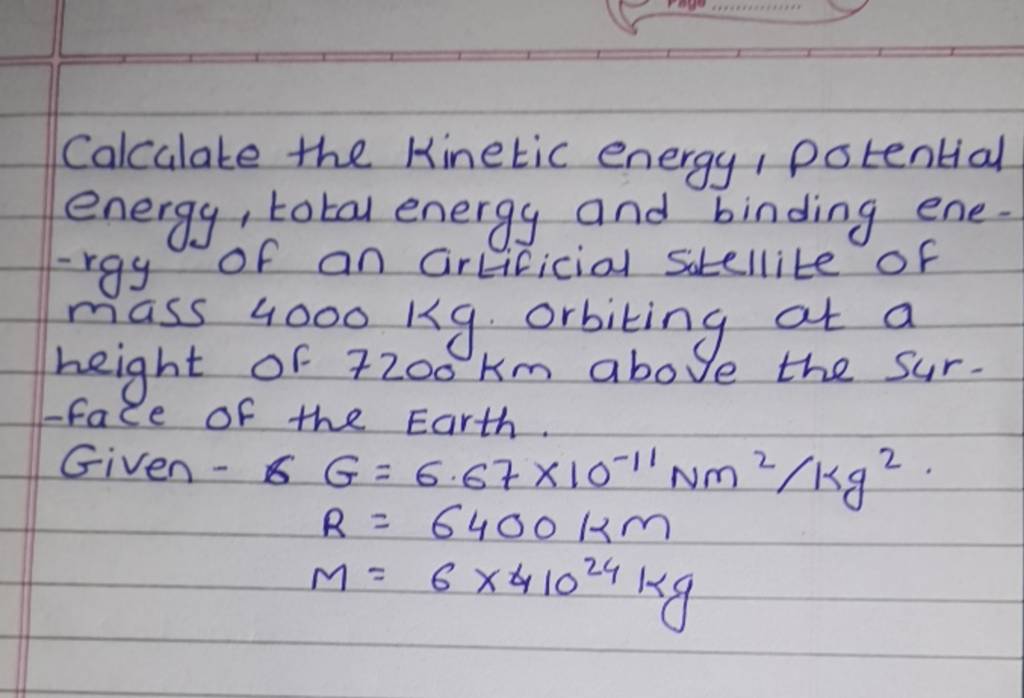 Page ..............
Calculate the Kinetic energy, potential
energy, total energy and binding ene-
-rgy of an artificial Satellite of
mass 4000 Kg. orbiting at a
height of 7200 Km above the Sur-
-face of the Earth.
Given - G = 6.67 × 10⁻¹¹ Nm²/Kg².
R = 6400 Km
M = 6 × 10²⁴ kg